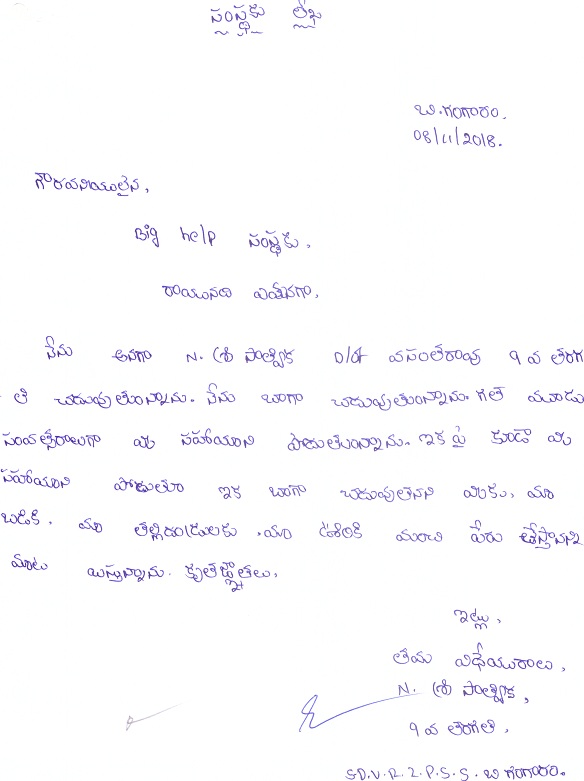 సంస్థకు లేఖ
బి.గంగారం.
08/11/2018.
గౌరవనియులైన,
Big help సంస్థకు,
రాయునది ఏమనగా,
నేను అనగా N. శ్రీ సాత్విక D/of వసంతరావు 9 వ తరగ
తి చదువుతున్నాను. నేను బాగా చదువుతున్నాను. గత మూడు
సంవత్సరాలుగా మీ సహాయాని పొదుతున్నాను. ఇక పై కూడా మీ
సహాయాని పోదుతూ ఇక బాగా చదువుతనని మీకు, మా
బడికి, మా తల్లిదండ్రులకు, మా ఊరికి మంచి పేరు తేస్తానని
మాట ఇస్తున్నాను. కృతజ్ఞతలు,
ఇట్లు,
తమ విధేయురాలు,
N. శ్రీ సాత్విక,
9 వ తరగతి,
S.D.V.R.Z.P.S.S. బి గంగారం.